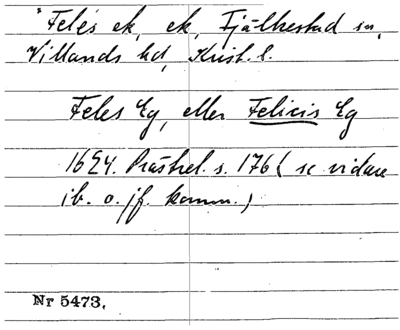 "Feles ek, ek, Fjälkestad sn,
Villands hd, Krist. l.
Feles Eg, eller Felicis Eg
1624. Prästrel. s. 176 ( se vidare
ib. o. jf. komm.)
Nr 5473.